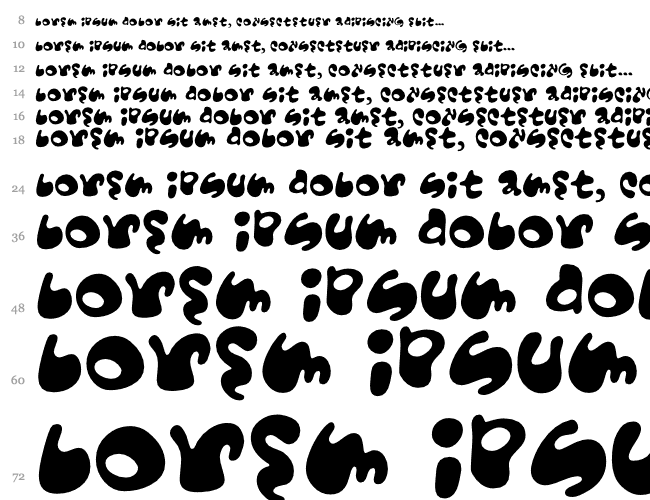 8 lorem ipsum dolor sit amet, consectetuer adipiscing elit...
10 lorem ipsum dolor sit amet, consectetuer adipiscing elit...
12 lorem ipsum dolor sit amet, consectetuer adipiscing elit...
14 lorem ipsum dolor sit amet, consectetuer adipiscing
16 lorem ipsum dolor sit amet, consectetuer adipi
18 lorem ipsum dolor sit amet, consectetue
24 lorem ipsum dolor sit amet, co
36 lorem ipsum dolor s
48 lorem ipsum do
60 lorem ipsum
72 lorem ipsu